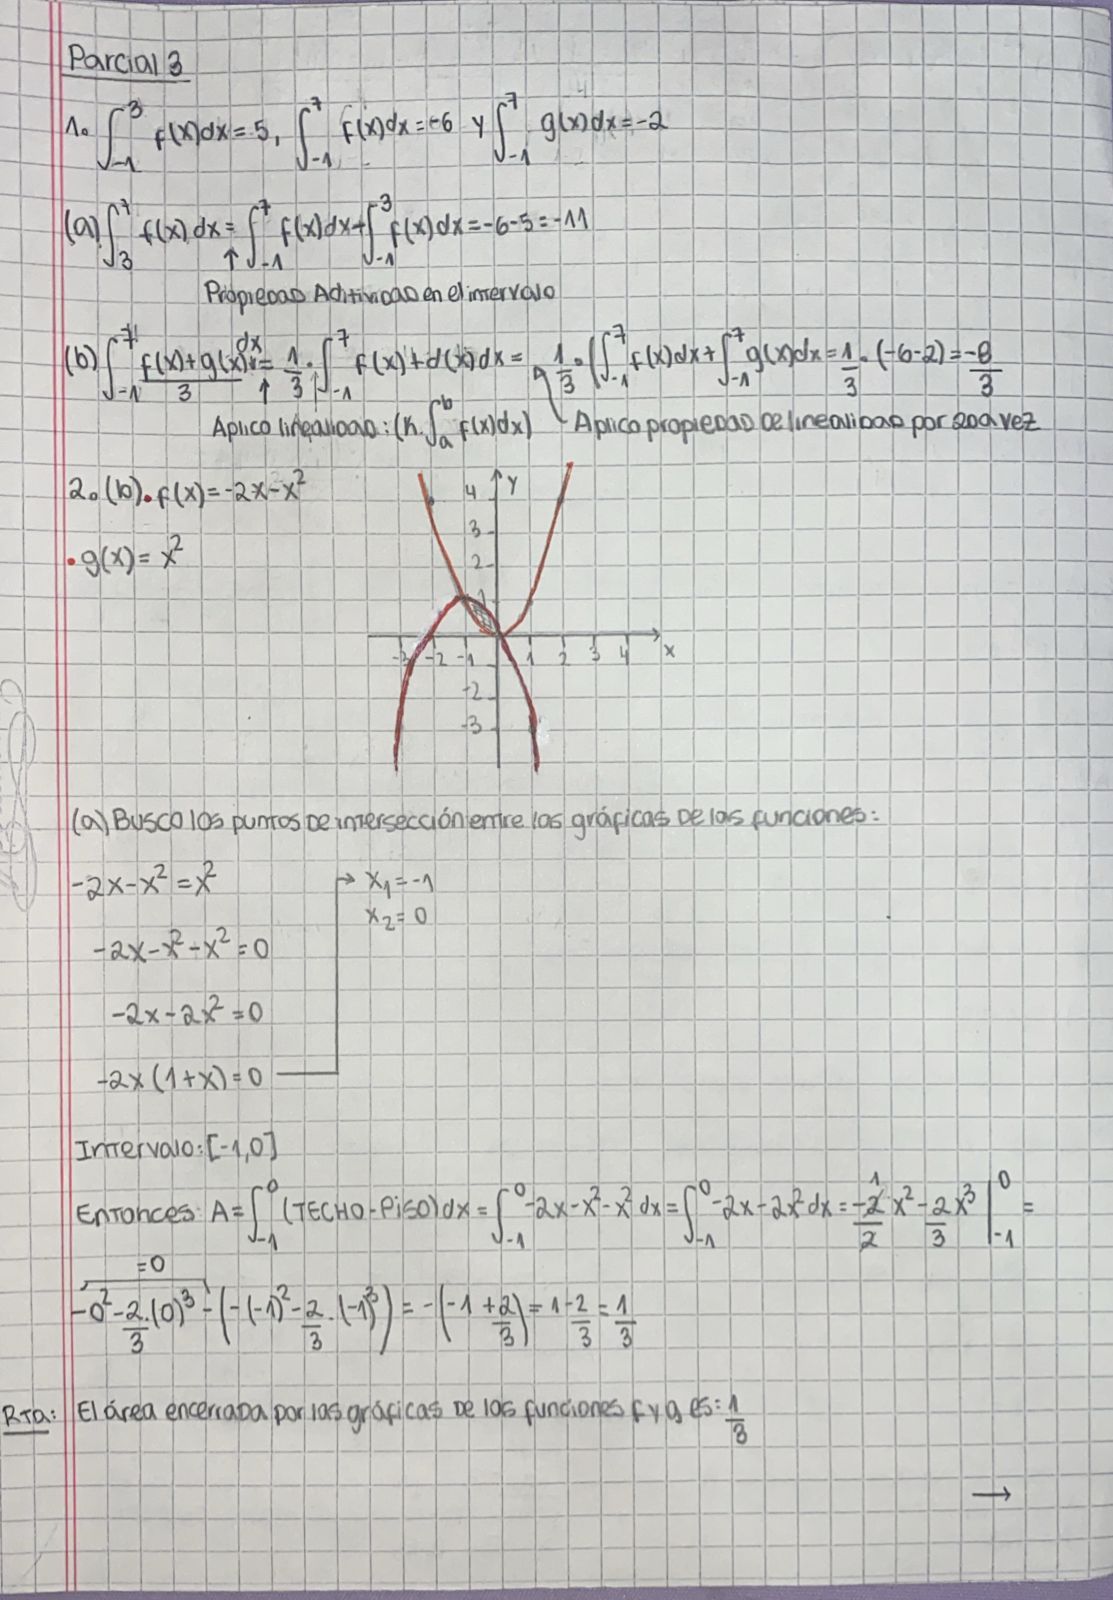 Parcial 3
1. ∫_{-1}^{3} f(x)dx = 5, ∫_{-1}^{7} f(x)dx = -6 y ∫_{-1}^{7} g(x)dx = -2
(a) ∫_{3}^{7} f(x) dx = ∫_{-1}^{7} f(x)dx + ∫_{-1}^{3} f(x)dx = -6-5 = -11
↑
Propiedad Aditividad en el intervalo
(b) ∫_{-1}^{7} \frac{f(x)+g(x)}{3} dx = \frac{1}{3} · ∫_{-1}^{7} f(x)+d(x)dx = \frac{1}{3} · (∫_{-1}^{7} f(x)dx + ∫_{-1}^{7} g(x)dx = \frac{1}{3} · (-6-2) = \frac{-8}{3}
Aplico linealidad: (K. ∫_{a}^{b} f(x)dx) Aplico propiedad de linealidad por 2da vez
2. (b) • f(x) = -2x-x²
• g(x) = x²
4 Y
3
2
1
-3 -2 -1 1 2 3 4 X
-2
-3
(a) Busco los puntos de intersección entre las gráficas de las funciones:
-2x-x² = x² → x₁ = -1
x₂ = 0
-2x-x²-x² = 0
-2x-2x² = 0
-2x(1+x) = 0
Intervalo: [-1,0]
Entonces: A = ∫_{-1}^{0} (TECHO-PISO) dx = ∫_{-1}^{0} -2x-x²-x² dx = ∫_{-1}^{0} -2x-2x² dx = \frac{-2}{2} 1 x² - \frac{2}{3} x³ |_{-1}^{0} =
=0
-0² - \frac{2}{3}.(0)³ - (-(-1)² - \frac{2}{3}.(-1)³) = -(-1+\frac{2}{3}) = 1-\frac{2}{3} = \frac{1}{3}
Rta: El área encerrada por las gráficas de las funciones f y g es: \frac{1}{3}
→